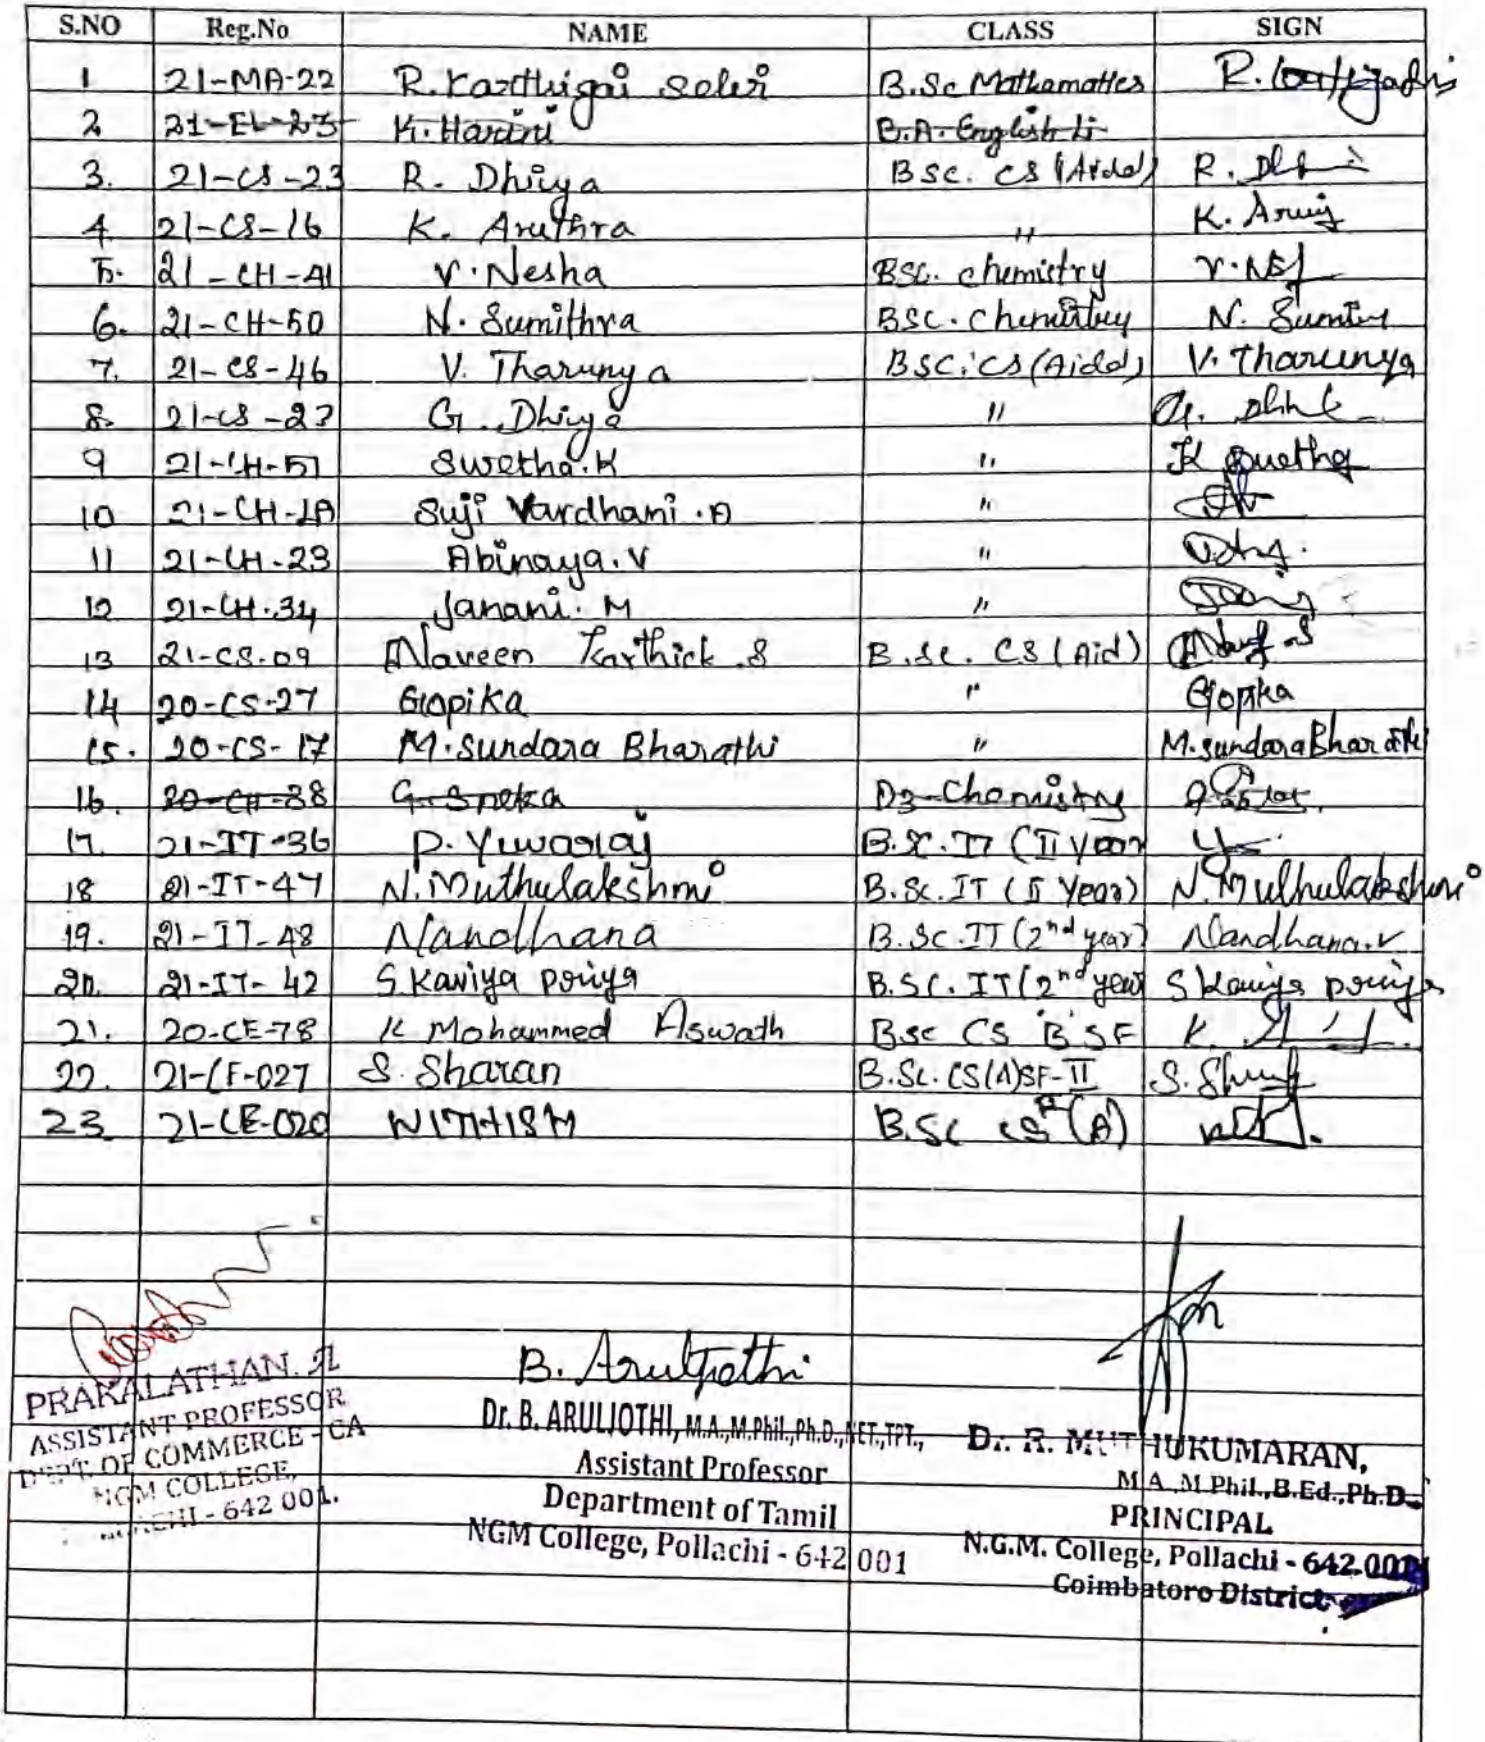 S.NO Reg.No NAME CLASS SIGN
1 21-MA-22 R. Karthigai Selvi B.Sc Mathamattes R.
2 21-EL-23 K. Harini B.A. English Li
3. 21-CS-23 R. Dhiya BSC. CS (Aided) R.
4. 21-CS-16 K. Aruthra " K.
5. 21-CH-41 V. Nesha BSC. chemistry V.
6. 21-CH-50 N. Sumithra BSC. chemistry N.
7. 21-CS-46 V. Tharunya BSC. CS (Aided) V. Tharunya
8. 21-CS-23 G. Dhiya " G.
9 21-CH-51 Swetha. K " K Swetha
10 21-CH- Suji Vardhani . A "
11 21-CH-23 Abinaya. V "
12 21-CH-34 Janani. M "
13 21-CS-09 Naveen Karthick .S B.Sc. CS (Aid)
14 20-CS-27 Gopika " Gopika
15. 20-CS-17 M. Sundara Bharathi " M. Sundara Bharathi
16. 20-CH-38 G. Sneka Chemistry
17. 21-IT-36 P. Yuvaraj B.Sc. IT (II Year
18 21-IT-47 N. Muthulakshmi B.Sc. IT (II Year) N. Muthulakshmi
19. 21-IT-48 Nandhana B.Sc. IT (2nd year) Nandhana.V
20. 21-IT-42 S Kaviya priya B.Sc. IT (2nd year S Kaviya priya
21. 20-CE-78 K Mohammed Aswath BSC CS 'B' SF K.
22. 21-CE-027 S. Sharan B.Sc. CS(A)SF-II S.
23 21-CE-020 NITHISM B.Sc CS (A)
B. Aruljothi
PRAKALATHAN.
ASSISTANT PROFESSOR
DEPT. OF COMMERCE - CA
NGM COLLEGE,
- 642 001.
Dr. B. ARULJOTHI, M.A.,M.Phil.,Ph.D.,NET.,TPT.,
Assistant Professor
Department of Tamil
NGM College, Pollachi - 642 001
Dr. R. MUTHUKUMARAN,
M.A.,M.Phil.,B.Ed.,Ph.D.
PRINCIPAL
N.G.M. College, Pollachi - 642 001
Coimbatore District